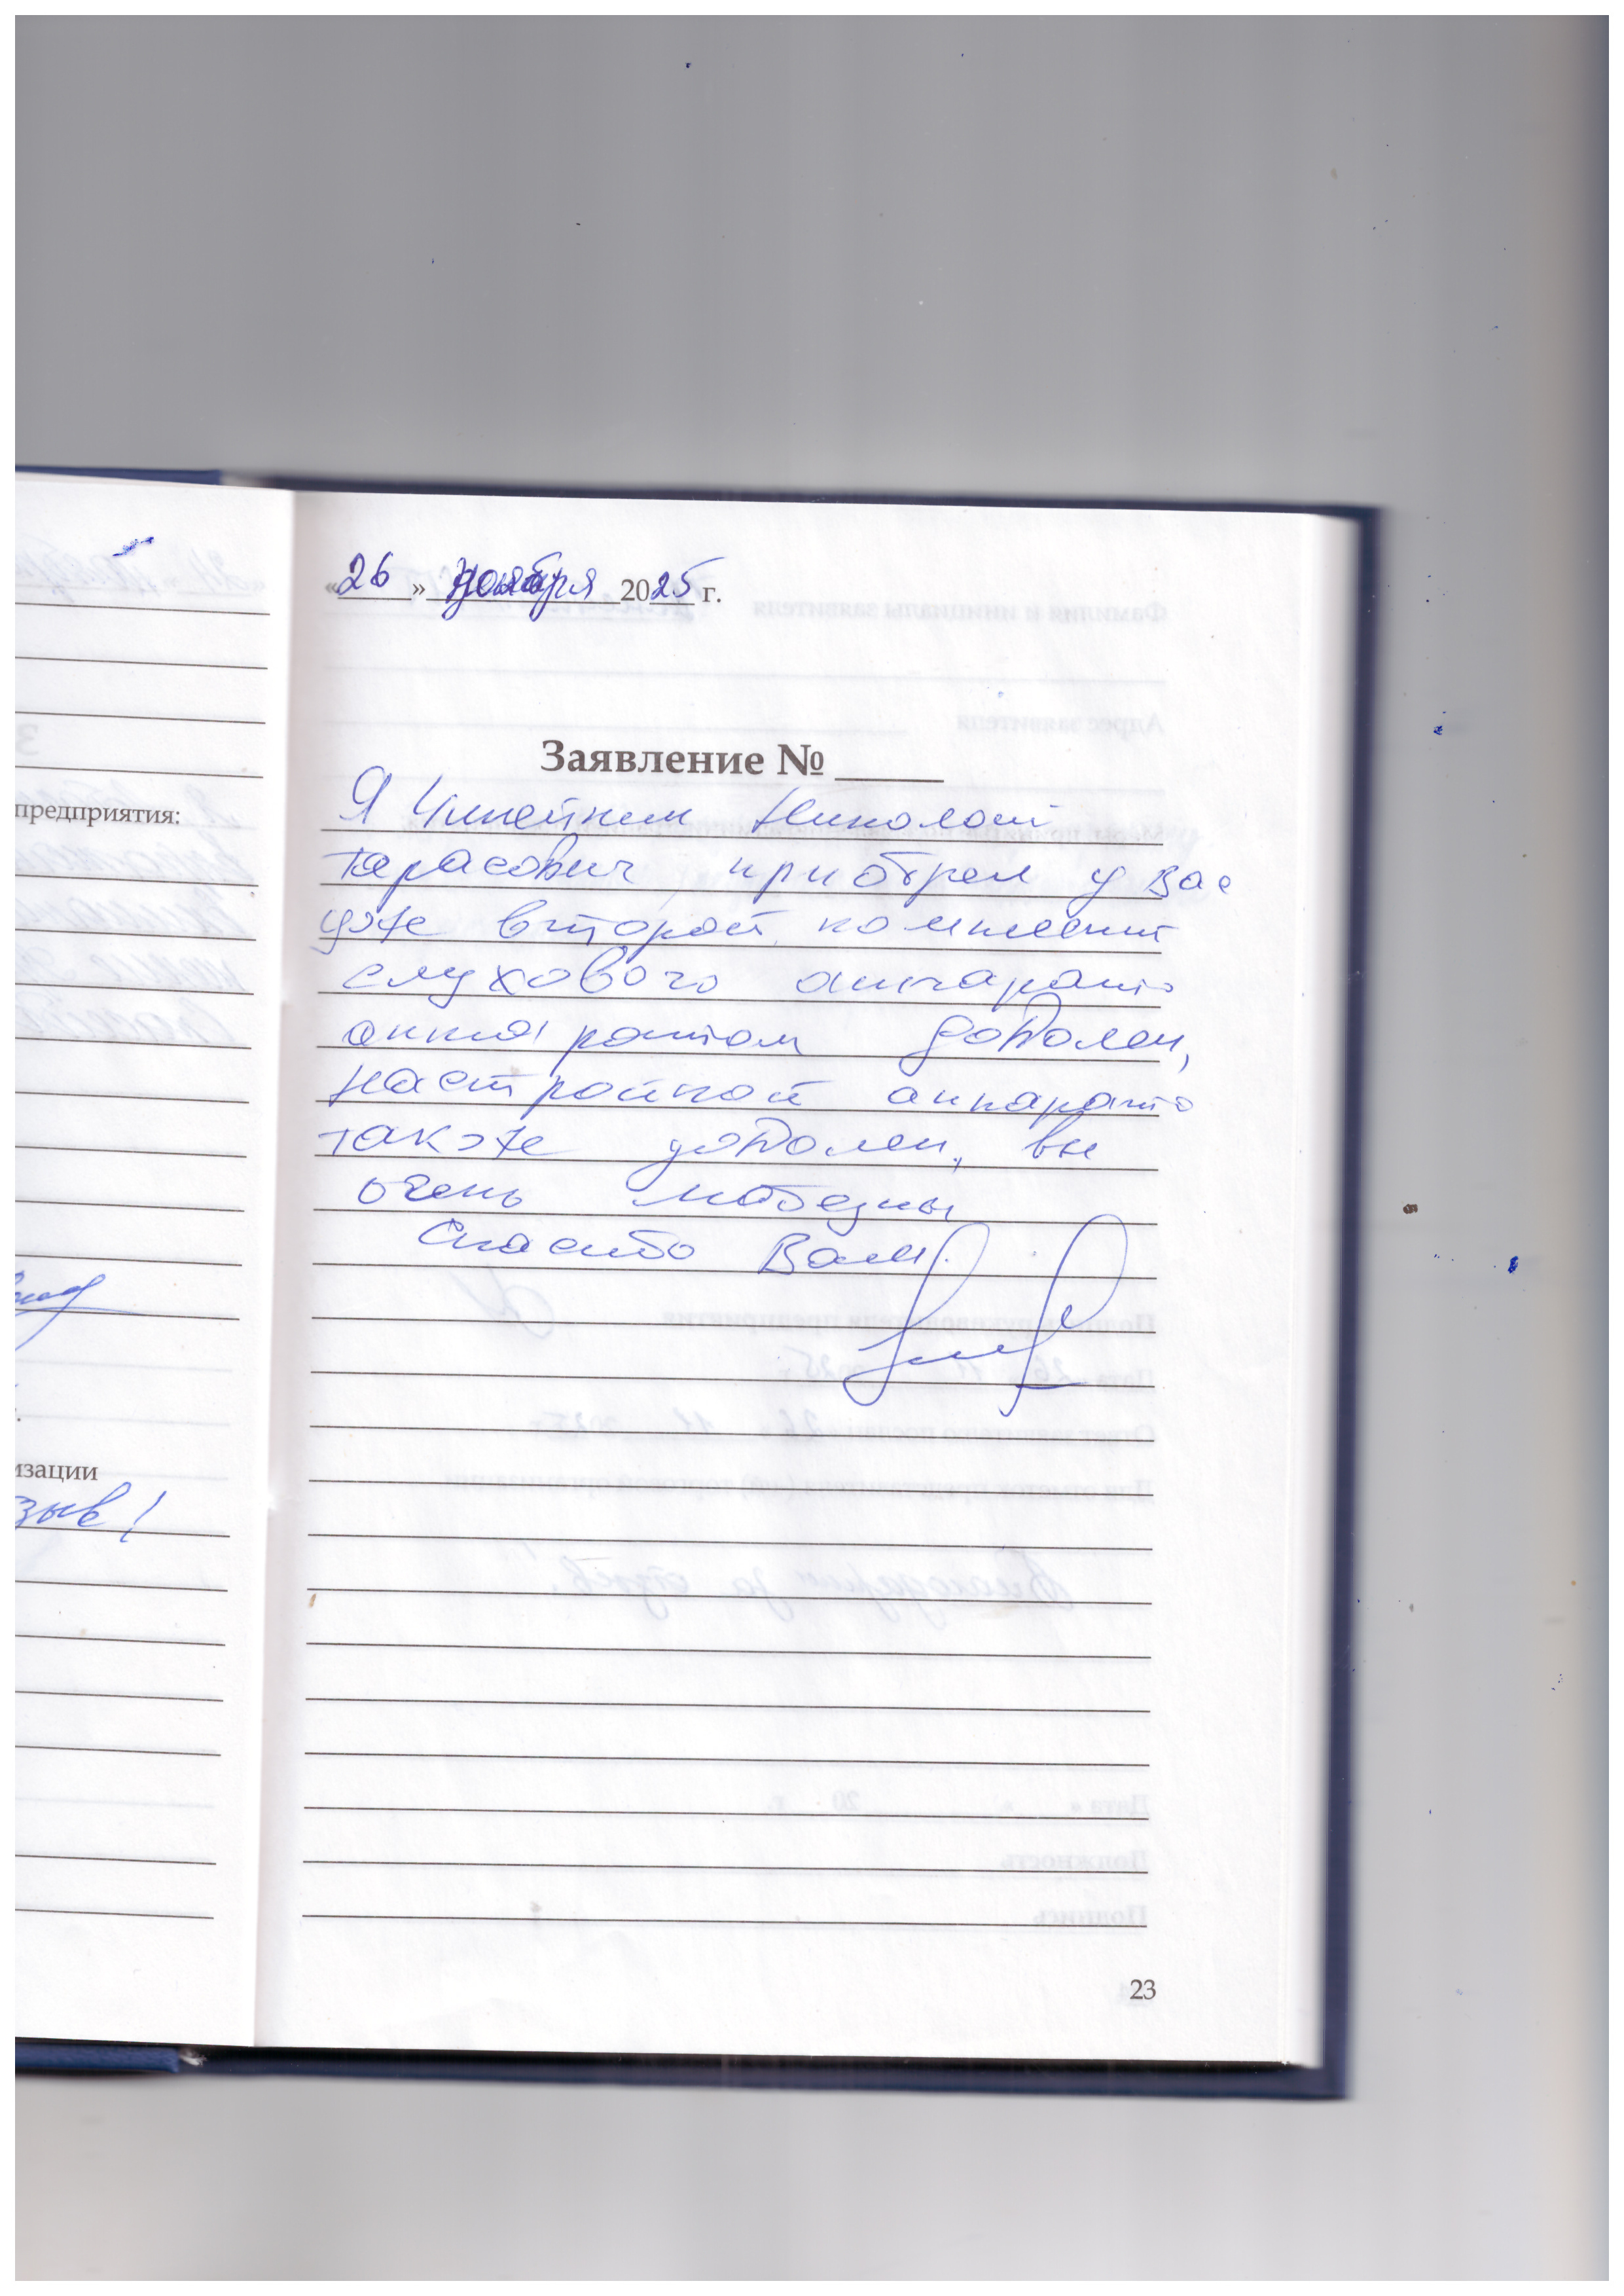 предприятия:
изации
зыв!
«26» Ноября 2025 г.
Заявление №
Я Николай
Тарасович приобрел у вас
уже второй комплект
слухового аппарата
аппаратом доволен,
настройкой аппарата
также доволен, вы
очень любезны
Спасибо Вам!
23